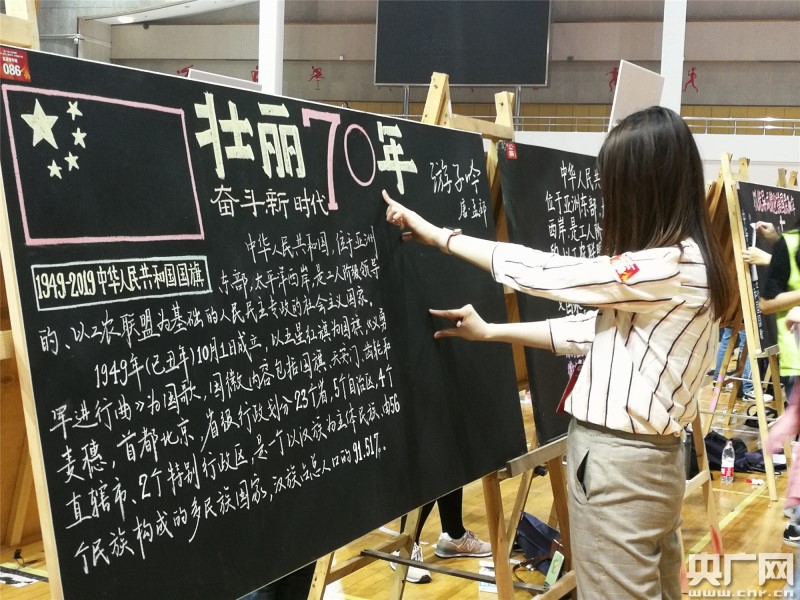 086
壮丽70年
奋斗新时代
游子吟
唐·孟郊
1949-2019中华人民共和国国旗
中华人民共和国,位于亚洲
东部,太平洋西岸,是工人阶级领导
的、以工农联盟为基础的人民民主专政的社会主义国家。
1949年(己丑年)10月1日成立,以五星红旗为国旗,《义勇
军进行曲》为国歌,国徽内容包括国旗、天安门、齿轮和
麦穗,首都北京,省级行政划分23个省、5个自治区、4个
直辖市、2个特别行政区,是一个以汉族为主体民族、由56
个民族构成的多民族国家,汉族占总人口的91.51%。
中华人民共
位于亚洲东部,
西岸,是工人阶
央广网
www.cnr.cn